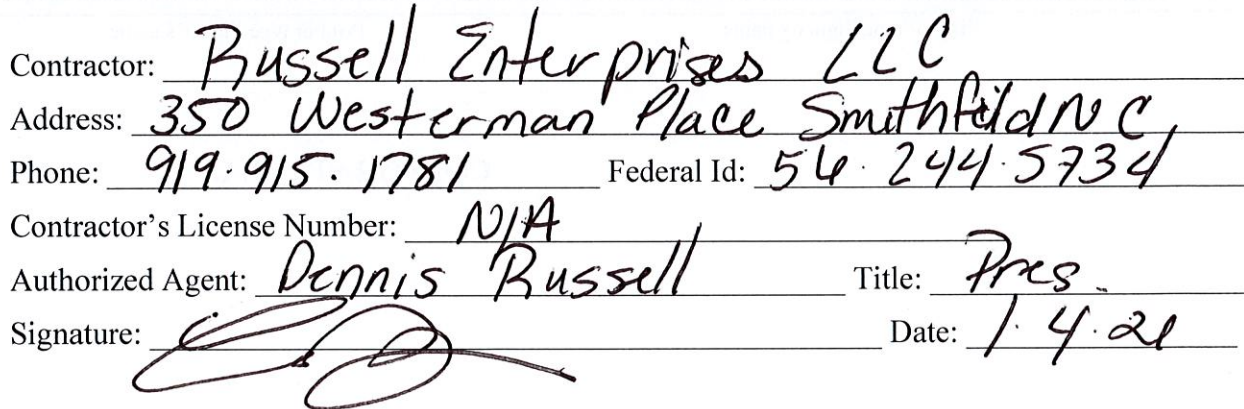 Contractor: Russell Enterprises LLC
Address: 350 Westerman Place Smithfield N C
Phone: 919.915.1781 Federal Id: 56.244.5734
Contractor's License Number: N/A
Authorized Agent: Dennis Russell Title: Pres.
Signature: Date: